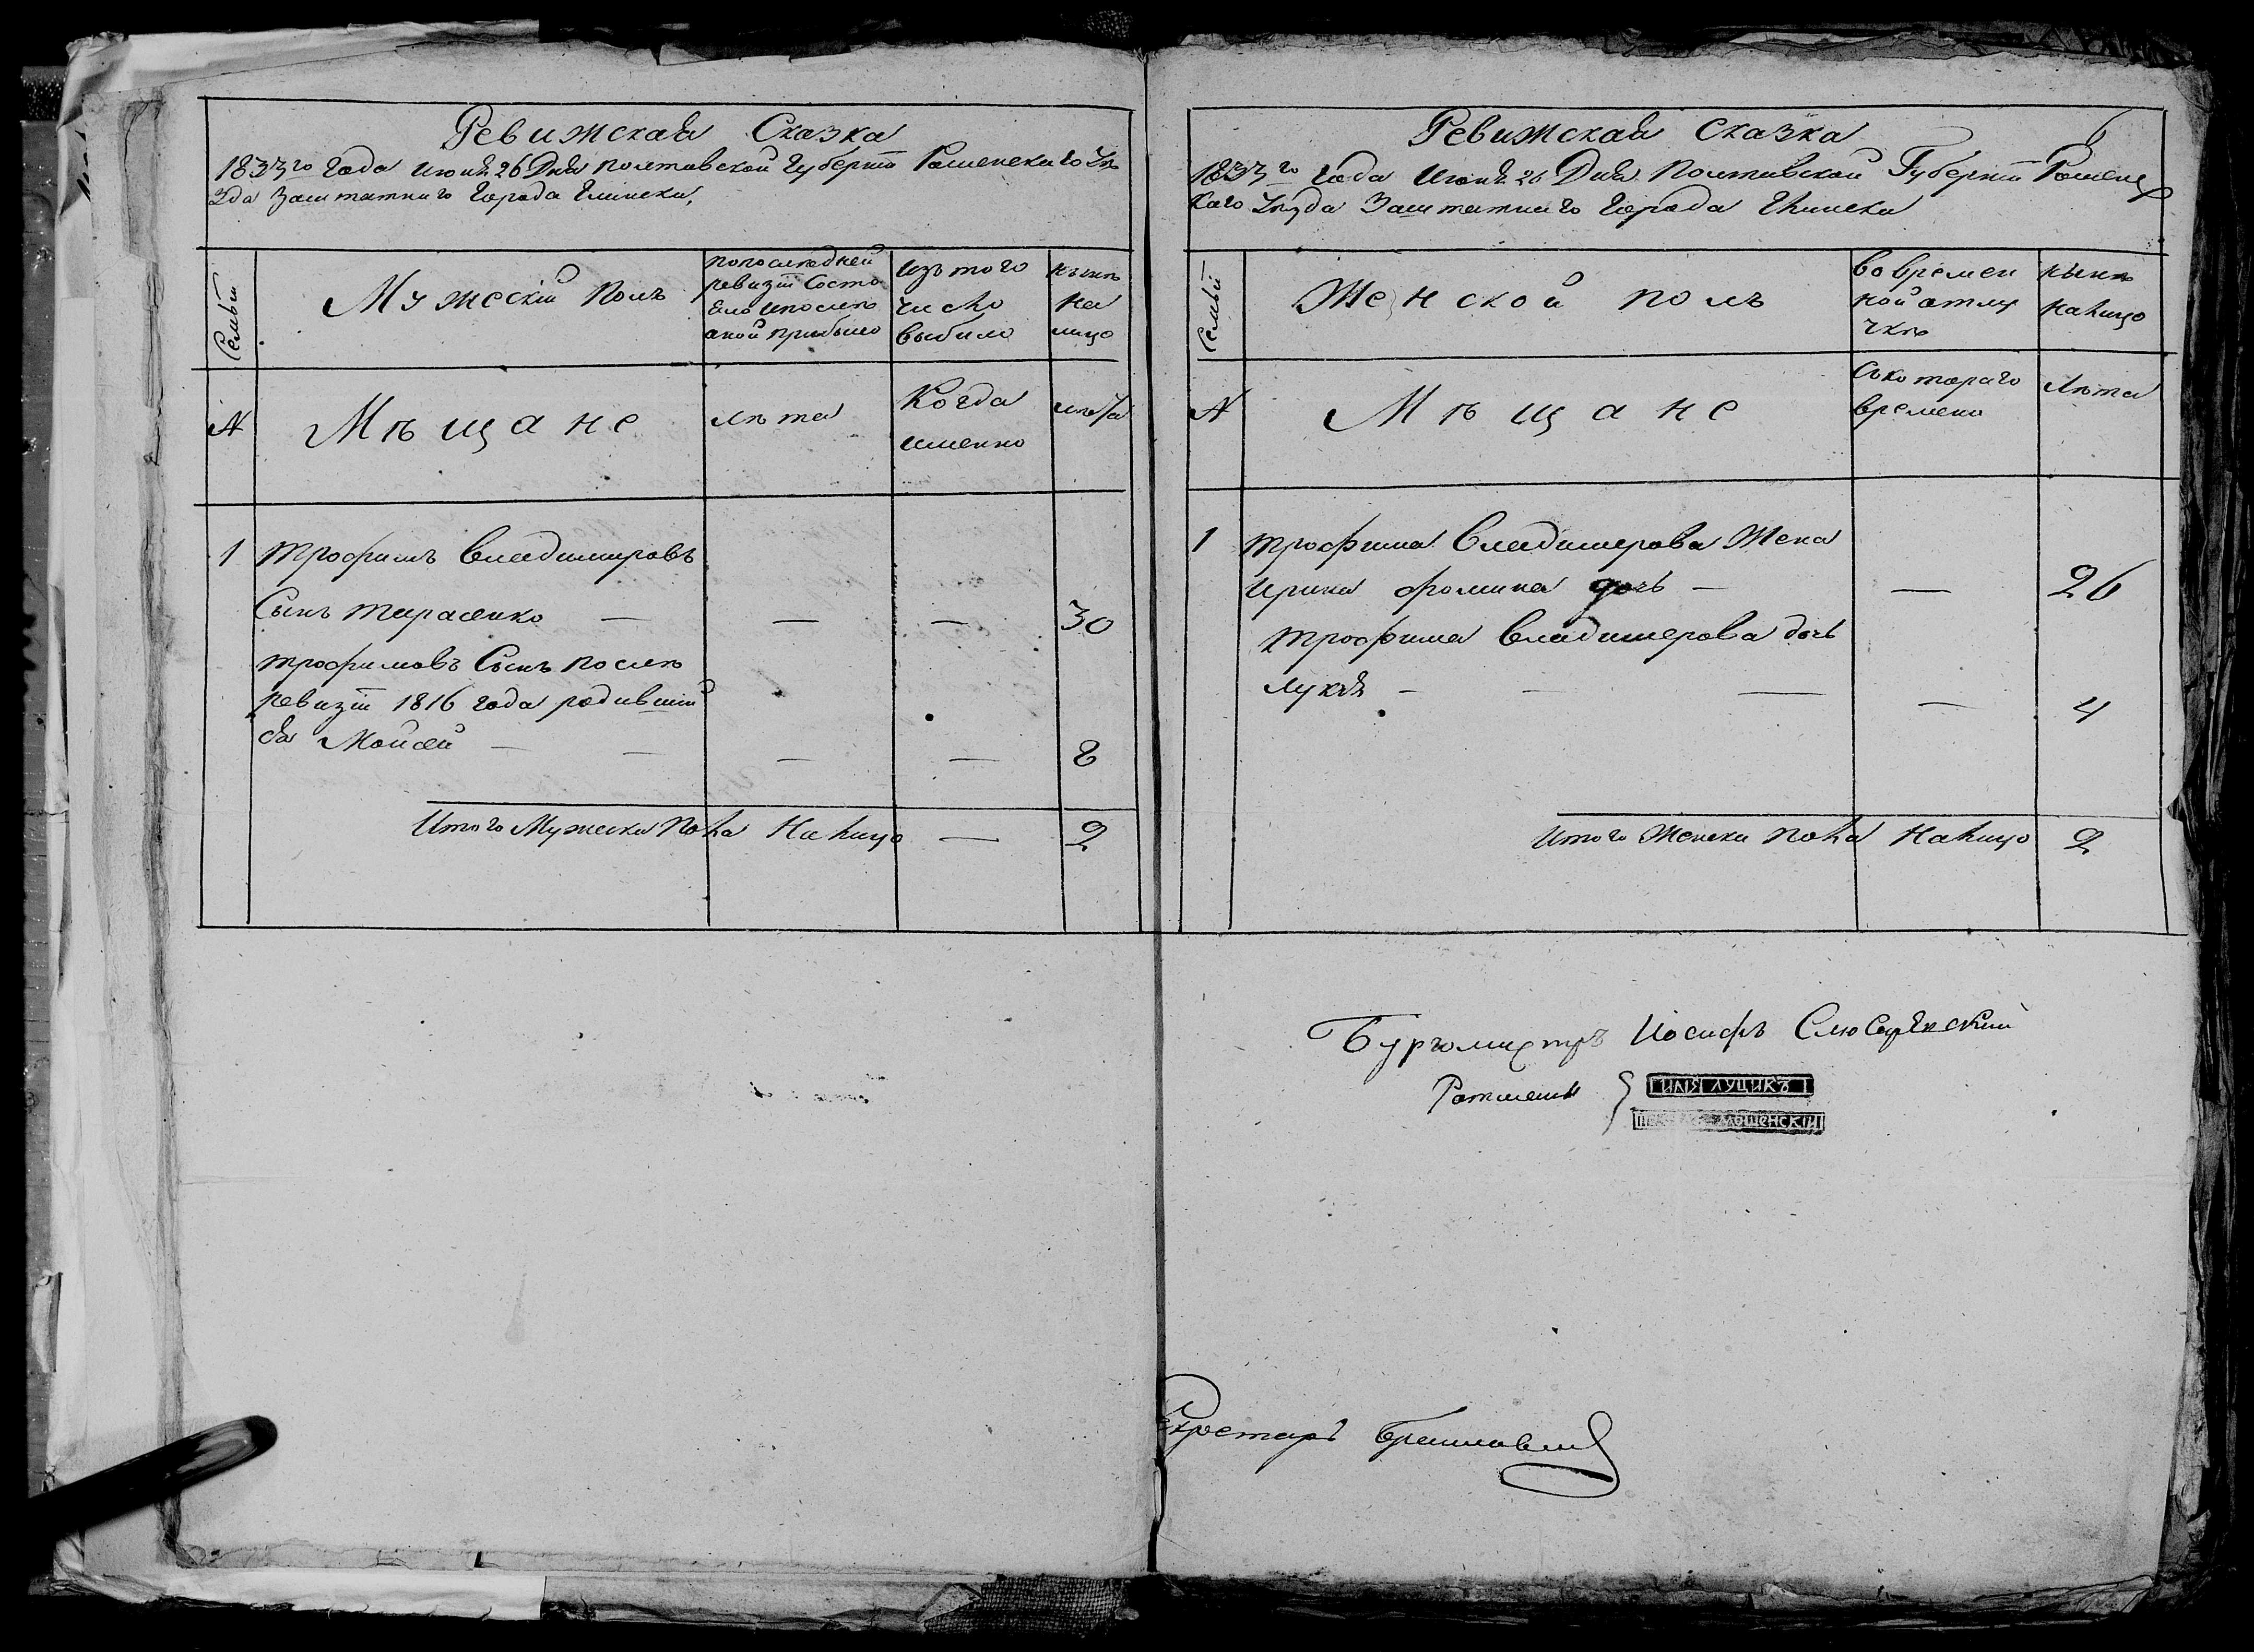 Ревижская Сказка
1833го года июня 26 Дня полтавской Губернїи Роменскаго Уѣ
зда Заштатнаго Города Глинска,
Семьи
Мужескїй Полъ
попоследней
ревизїи Состо
яло ипосле
оной прибыло
изъ того
число
выбило
нынѣ
на
лицо
№
Мѣщане
лѣта
Когда
именно
лѣта
1 трофимъ владимировъ
Сынъ тарасенко — — — 30
трофимовъ Сынъ послѣ
ревизїи 1816 года родившїй
ся Мойсей — — — — 8
Итого Мужеска Пола На лицо — 2
6
Ревижская Сказка
1833го года Июня 26 Дня Полтавской Губернїи Роменс
каго Уѣзда Заштатнаго Города Глинска
Семьи
Женской полъ
во времен
ной отлу
чкѣ
нынѣ
налицо
№
Мѣщане
съ котораго
времени
Лѣта
1 трофима владимерова Жена
ирина фомина дочь — — 26
трофима владимерова дочь
лукїя — — — — 4
Итого Женска пола Налицо 2
Бургомистръ Иосифъ Слюсаревский
Ратманы
ИЛІЯ ЛУЦИКЪ
Секретарь